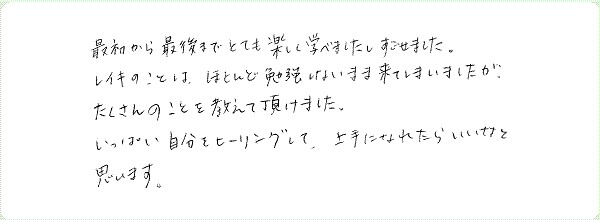 最初から最後までとても楽しく学べましたしすごせました。
レイキのことは、ほとんど勉強しないまま来てしまいましたが、
たくさんのことを教えて頂けました。
いっぱい自分をヒーリングして、上手になれたらいいなと
思います。